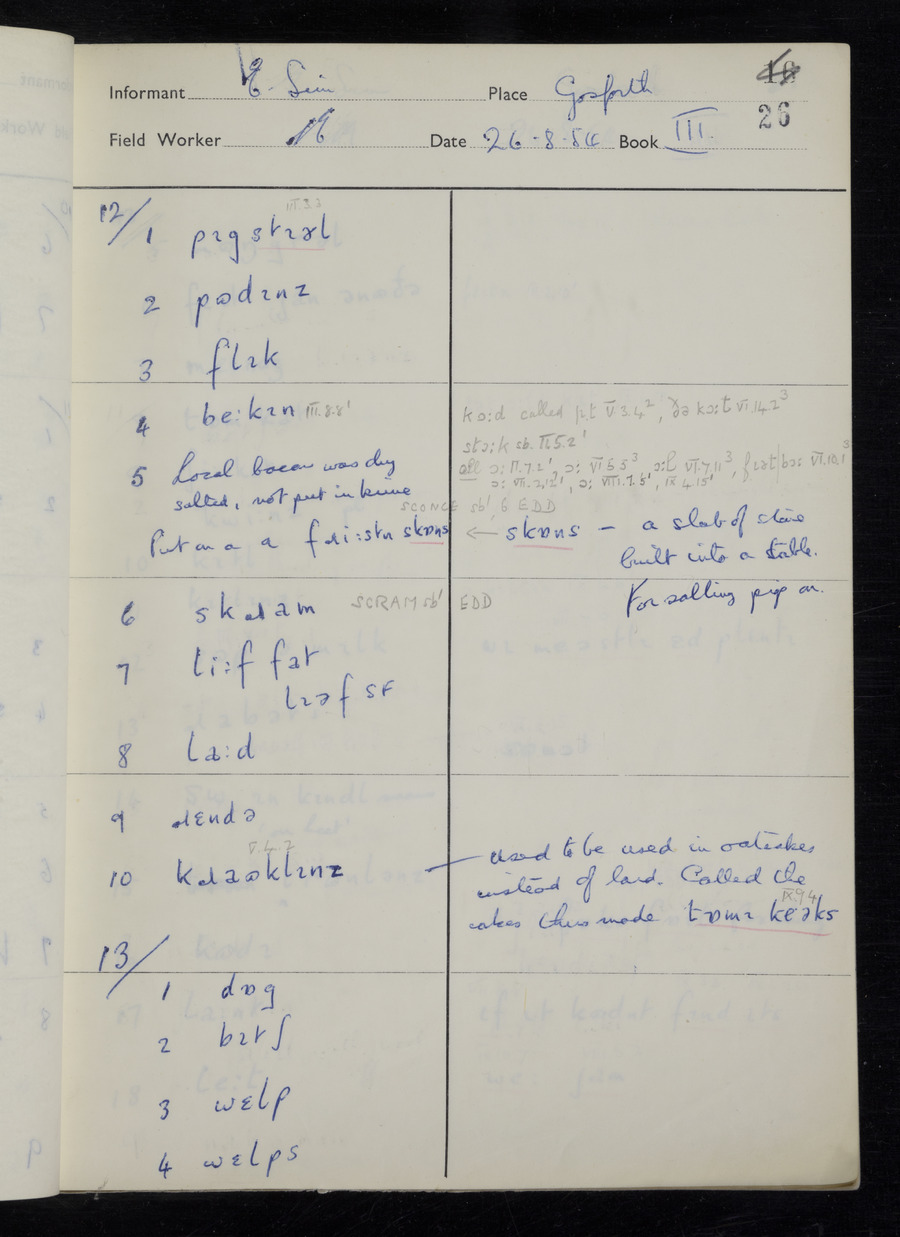 Informant E. Place Gosforth
26
Field Worker Date 26-8-54 Book III.
12/
III.3.3
1 pɪgstɪəl
2 pʊdɪnz
3 flɪk
4 be:kɪn III.8.8'
5 Local bacon was dry
salted, not put in brine
SCONCE sb' 6 EDD
Put on a a skɒns
kɔ:d called p.t. V.3.4², ðə kɔ:t VI.14.2³
stɔ:k sb. II.5.2'
all ɔ: II.7.2', ɔ: VI.5.5³, ɔ:l VI.7.11³, VII.10.1³
ɔ: VII.2.12', ɔ: VIII.7.5', IX.4.15'
← skɒns – a slab of stone
built into a stable.
For salting pig on.
6 skɹam SCRAM sb' EDD
7 li:f fat
lɪəf SF
8 la:d
9 ɹɛndə
V.4.2
10 kɹaəklɪnz — used to be used in oatcakes
instead of lard. Called the
IX.9.4
cakes thus made tɒmɪ keəks
13/
1 dɒg
2 bɪtʃ
3 wɛlp
4 wɛlps